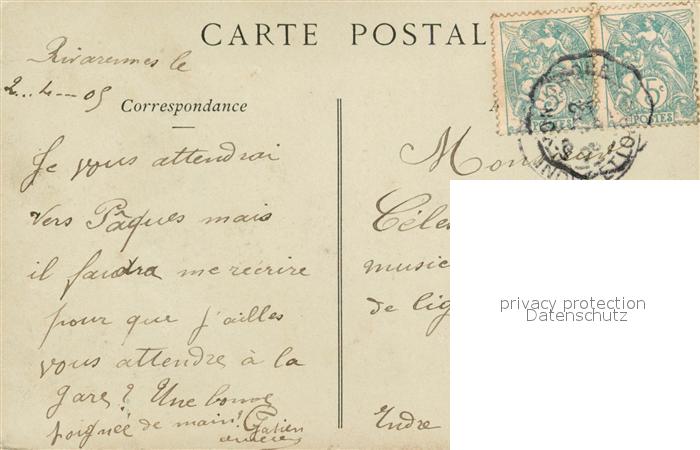 CARTE POSTAL
Rivarennes le
2..4--05
Correspondance
Je vous attendrai
vers Pâques mais
il faudra me récrire
pour que j'ailles
vous attendre à la
gare? Une bonne
poignée de main!
Mon
Céles
music
de lig
Indre
5c
POSTES
POSTES
privacy protection
Datenschutz